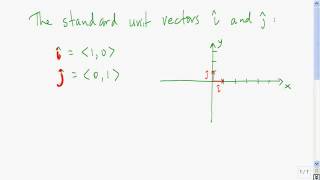 The standard unit vectors î and ĵ:
î = <1,0>
ĵ = <0,1>
y
j
i
x
1/1